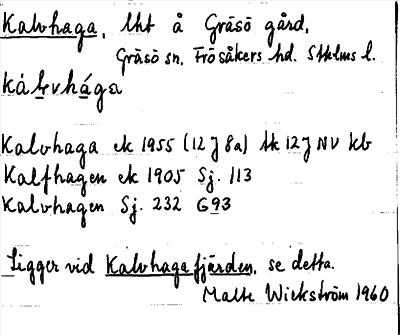 Kalvhaga, lht å Gräsö gård,
Gräsö sn, Frösåkers hd. Sthlms l.
kàlvhága
Kalvhaga ek 1955 (12 J 8a) tk 12 J NV kb
Kalfhagen ek 1905 Sj. 113
Kalvhagen Sj. 232 G93
Ligger vid Kalvhagafjärden, se detta.
Malte Wickström 1960